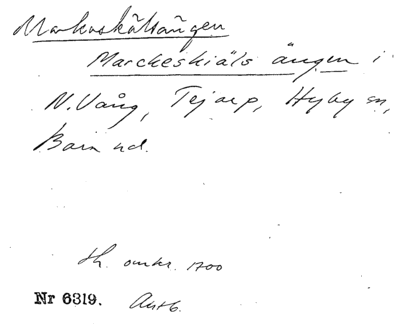 Markeskälsängen
Marckeskiäls ängen i
N. Vång, Tejarp, Hyby sn,
Bara hd.
th. omkr. 1700
Nr 6319. Antb.